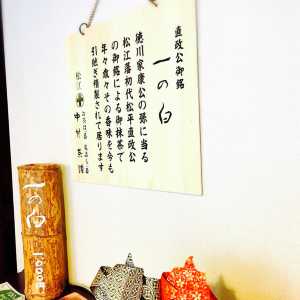 直政公御銘
一の白
徳川家康公の孫に当る
松江藩初代松平直政公
の御銘による御抹茶で
年々歳々その香味を今も
引継ぎ精製されて居ります
松江
中村茶舗
一の白